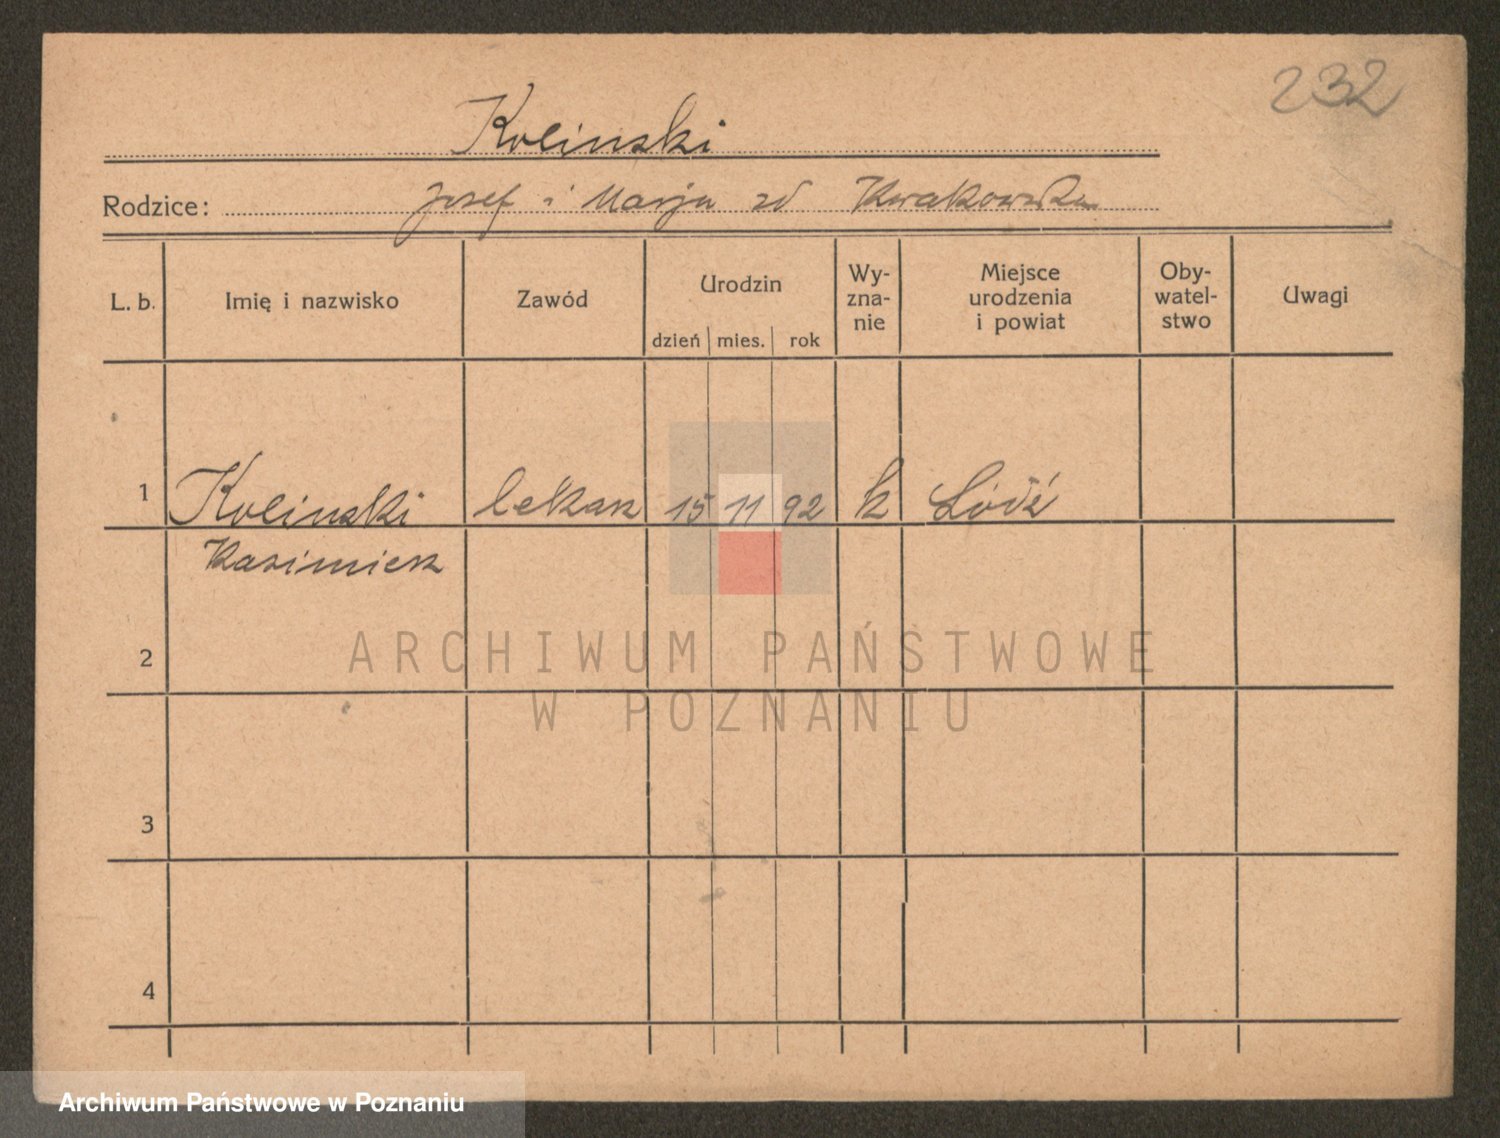 232
Kolinski
Rodzice: Josef i Marja zd Kwakowska
L. b. Imię i nazwisko Zawód Urodzin dzień mies. rok Wy-zna-nie Miejsce urodzenia i powiat Oby-watel-stwo Uwagi
1 Kolinski lekarz 15 11 92 k Łódź
Kazimierz
2
3
4
ARCHIWUM PAŃSTWOWE
W POZNANIU
Archiwum Państwowe w Poznaniu